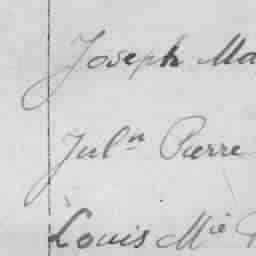 Joseph Ma
Julⁿ Pierre
Louis Mⁱᵉ